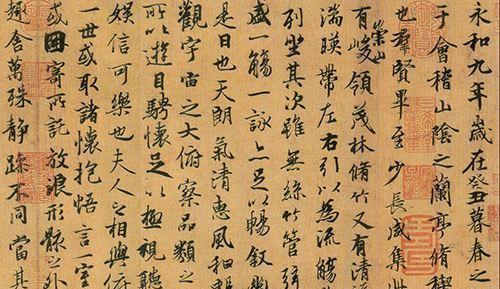 永和九年歲在癸丑暮春之
于會稽山陰之蘭亭脩稧
也羣賢畢至少長咸集此
有崇山峻領茂林脩竹又有清
湍暎帶左右引以為流觴
列坐其次雖無絲竹管弦
盛一觴一詠亦足以暢叙
是日也天朗氣清惠風和
觀宇宙之大俯察品類之
所以遊目騁懷足以極視聽
娛信可樂也夫人之相與俯
一世或取諸懷抱悟言一室
或因寄所託放浪形骸之外
趣舍萬殊静躁不同當其